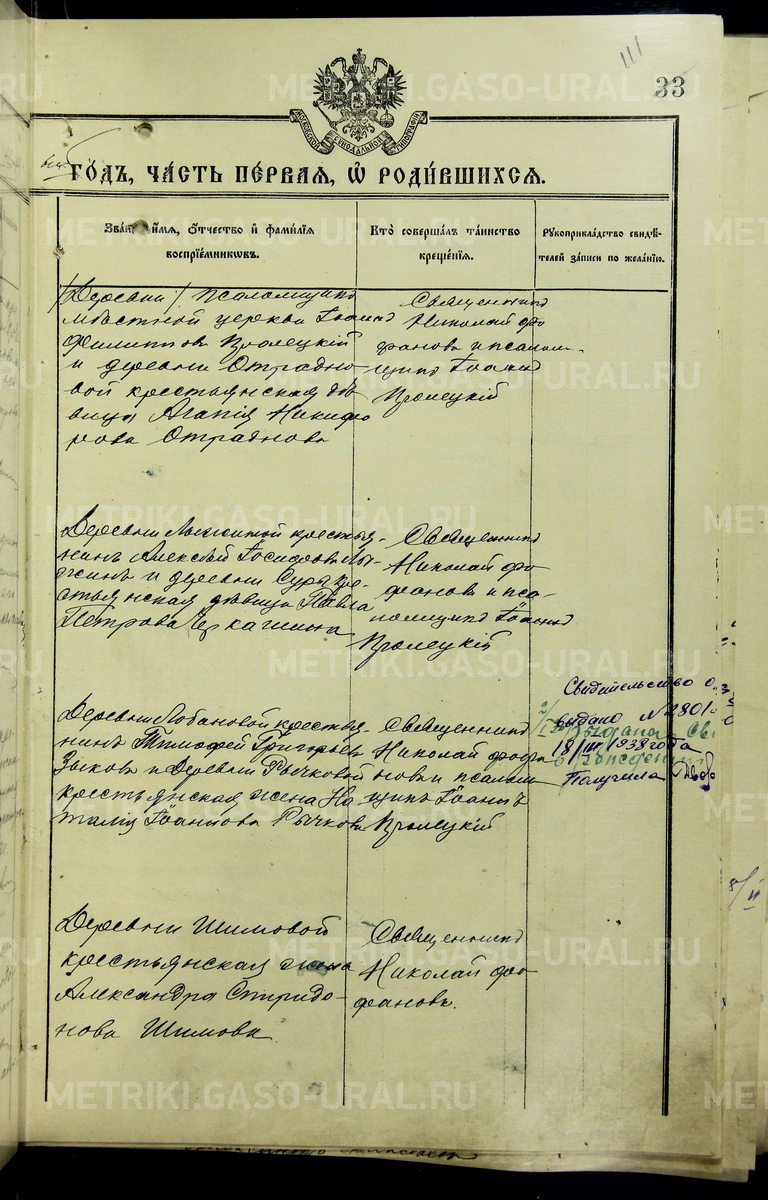 111
33
МОСКОВСКОЙ СѴНОДАЛЬНОЙ ТИПОГРАФІИ
ГОДЪ, ЧАСТЬ ПЕРВАЯ, Ѡ РОДИВШИХСЯ.
Званіе, имя, отчество и фамилія воспріемниковъ.
Кто совершалъ таинство крещенія.
Рукоприкладство свидѣтелей записи по желанію.
/Деревни/ псаломщикъ
мѣстной церкви Іоаннъ
Филиппов
и деревни Отрадно-
вой крестьянская дѣ-
вица Агапія Никифо
рова Отраднова
Священникъ
Николай Фо
фановъ и псалом-
щикъ Іоаннъ
Деревни Лыжиной крестья-
нинъ Алексѣй Іосифовъ Лы-
жинъ и деревни Суры кре-
стьянская дѣвица Павла
Петрова
Священникъ
Николай Фо-
фановъ и пса-
ломщикъ Іоаннъ
Деревни Лобановой крестья-
нинъ Тимофей Григорьев
Зыковъ и деревни Рычковой
крестьянская жена На
талія Іоаннова Рычкова
Священникъ
Николай Фофа
новъ и псалом
щикъ Іоаннъ
Свидетельство о
выдано № 2801
18/III 1938 года
Получила
Выдана
Деревни Шимовой
крестьянская жена
Александра Спиридо-
нова Шимова.
Священникъ
Николай Фо-
фановъ.
METRIKI.GASO-URAL.RU